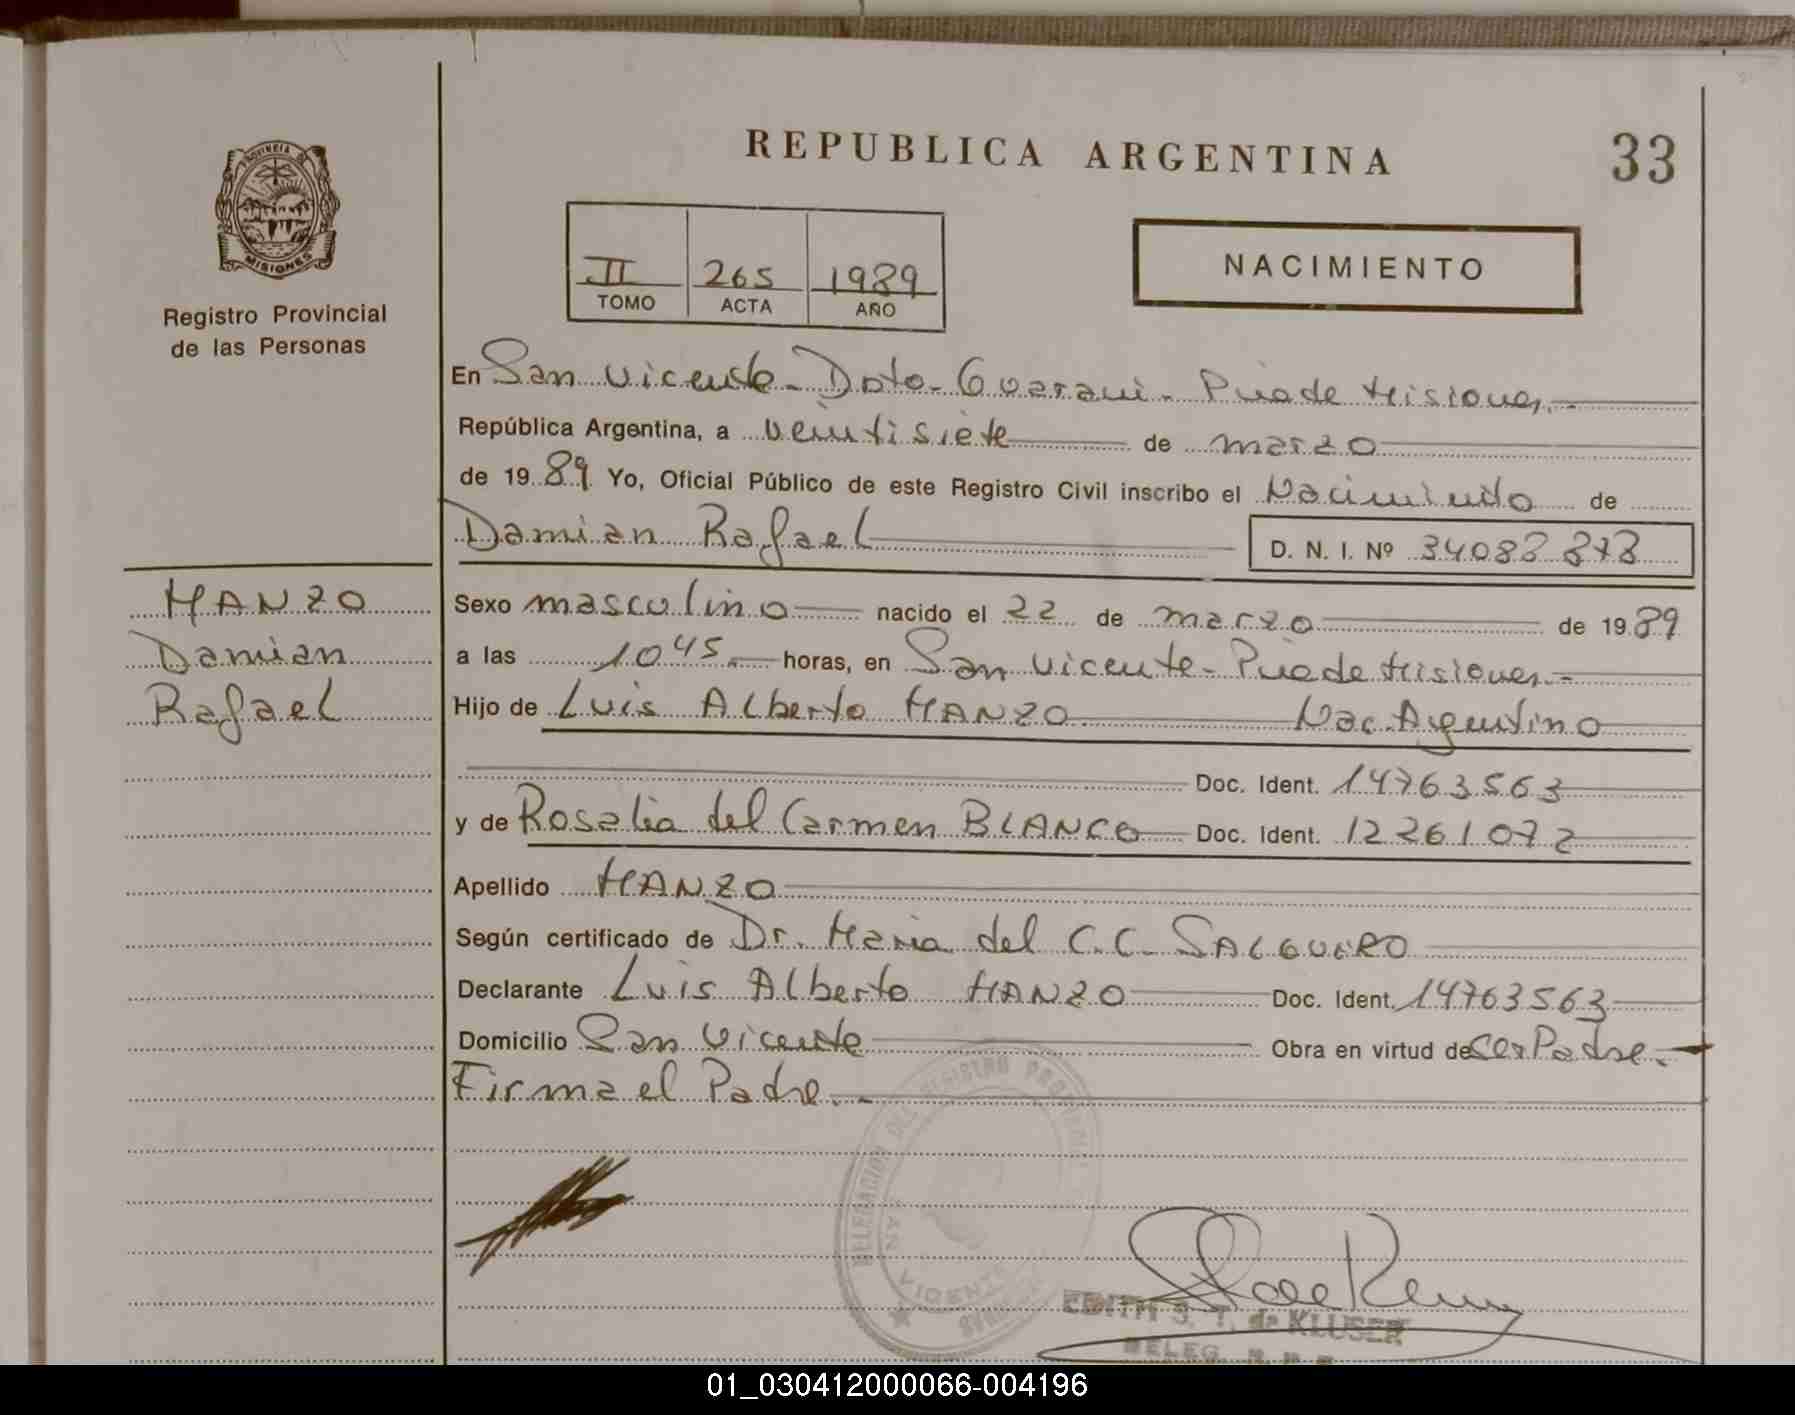 REPUBLICA ARGENTINA
33
PROVINCIA DE
MISIONES
Registro Provincial
de las Personas
II 265 1989
TOMO ACTA AÑO
NACIMIENTO
En San Vicente - Dpto - Guarani - Pciade Misiones.-
República Argentina, a veintisiete de marzo
de 1989 Yo, Oficial Público de este Registro Civil inscribo el Nacimiento de
Damian Rafael D. N. I. Nº 34083 873
MANZO
Damian
Rafael
Sexo masculino nacido el 22 de marzo de 1989
a las 1045.- horas, en San Vicente - Pciade Misiones.-
Hijo de Luis Alberto MANZO Nac. Argentino
Doc. Ident. 14763563
y de Rosalia del Carmen BLANCO Doc. Ident. 12261072
Apellido MANZO
Según certificado de Dr. Maria del C.C. SALGUERO
Declarante Luis Alberto MANZO Doc. Ident. 14763563
Domicilio San Vicente Obra en virtud de ser Padre.-
Firma el Padre.-
DELEGACION DEL REGISTRO PROVINCIAL
SAN VICENTE
EDITH S. T. de KLUSER
DELEG. R. P. P.
01_030412000066-004196